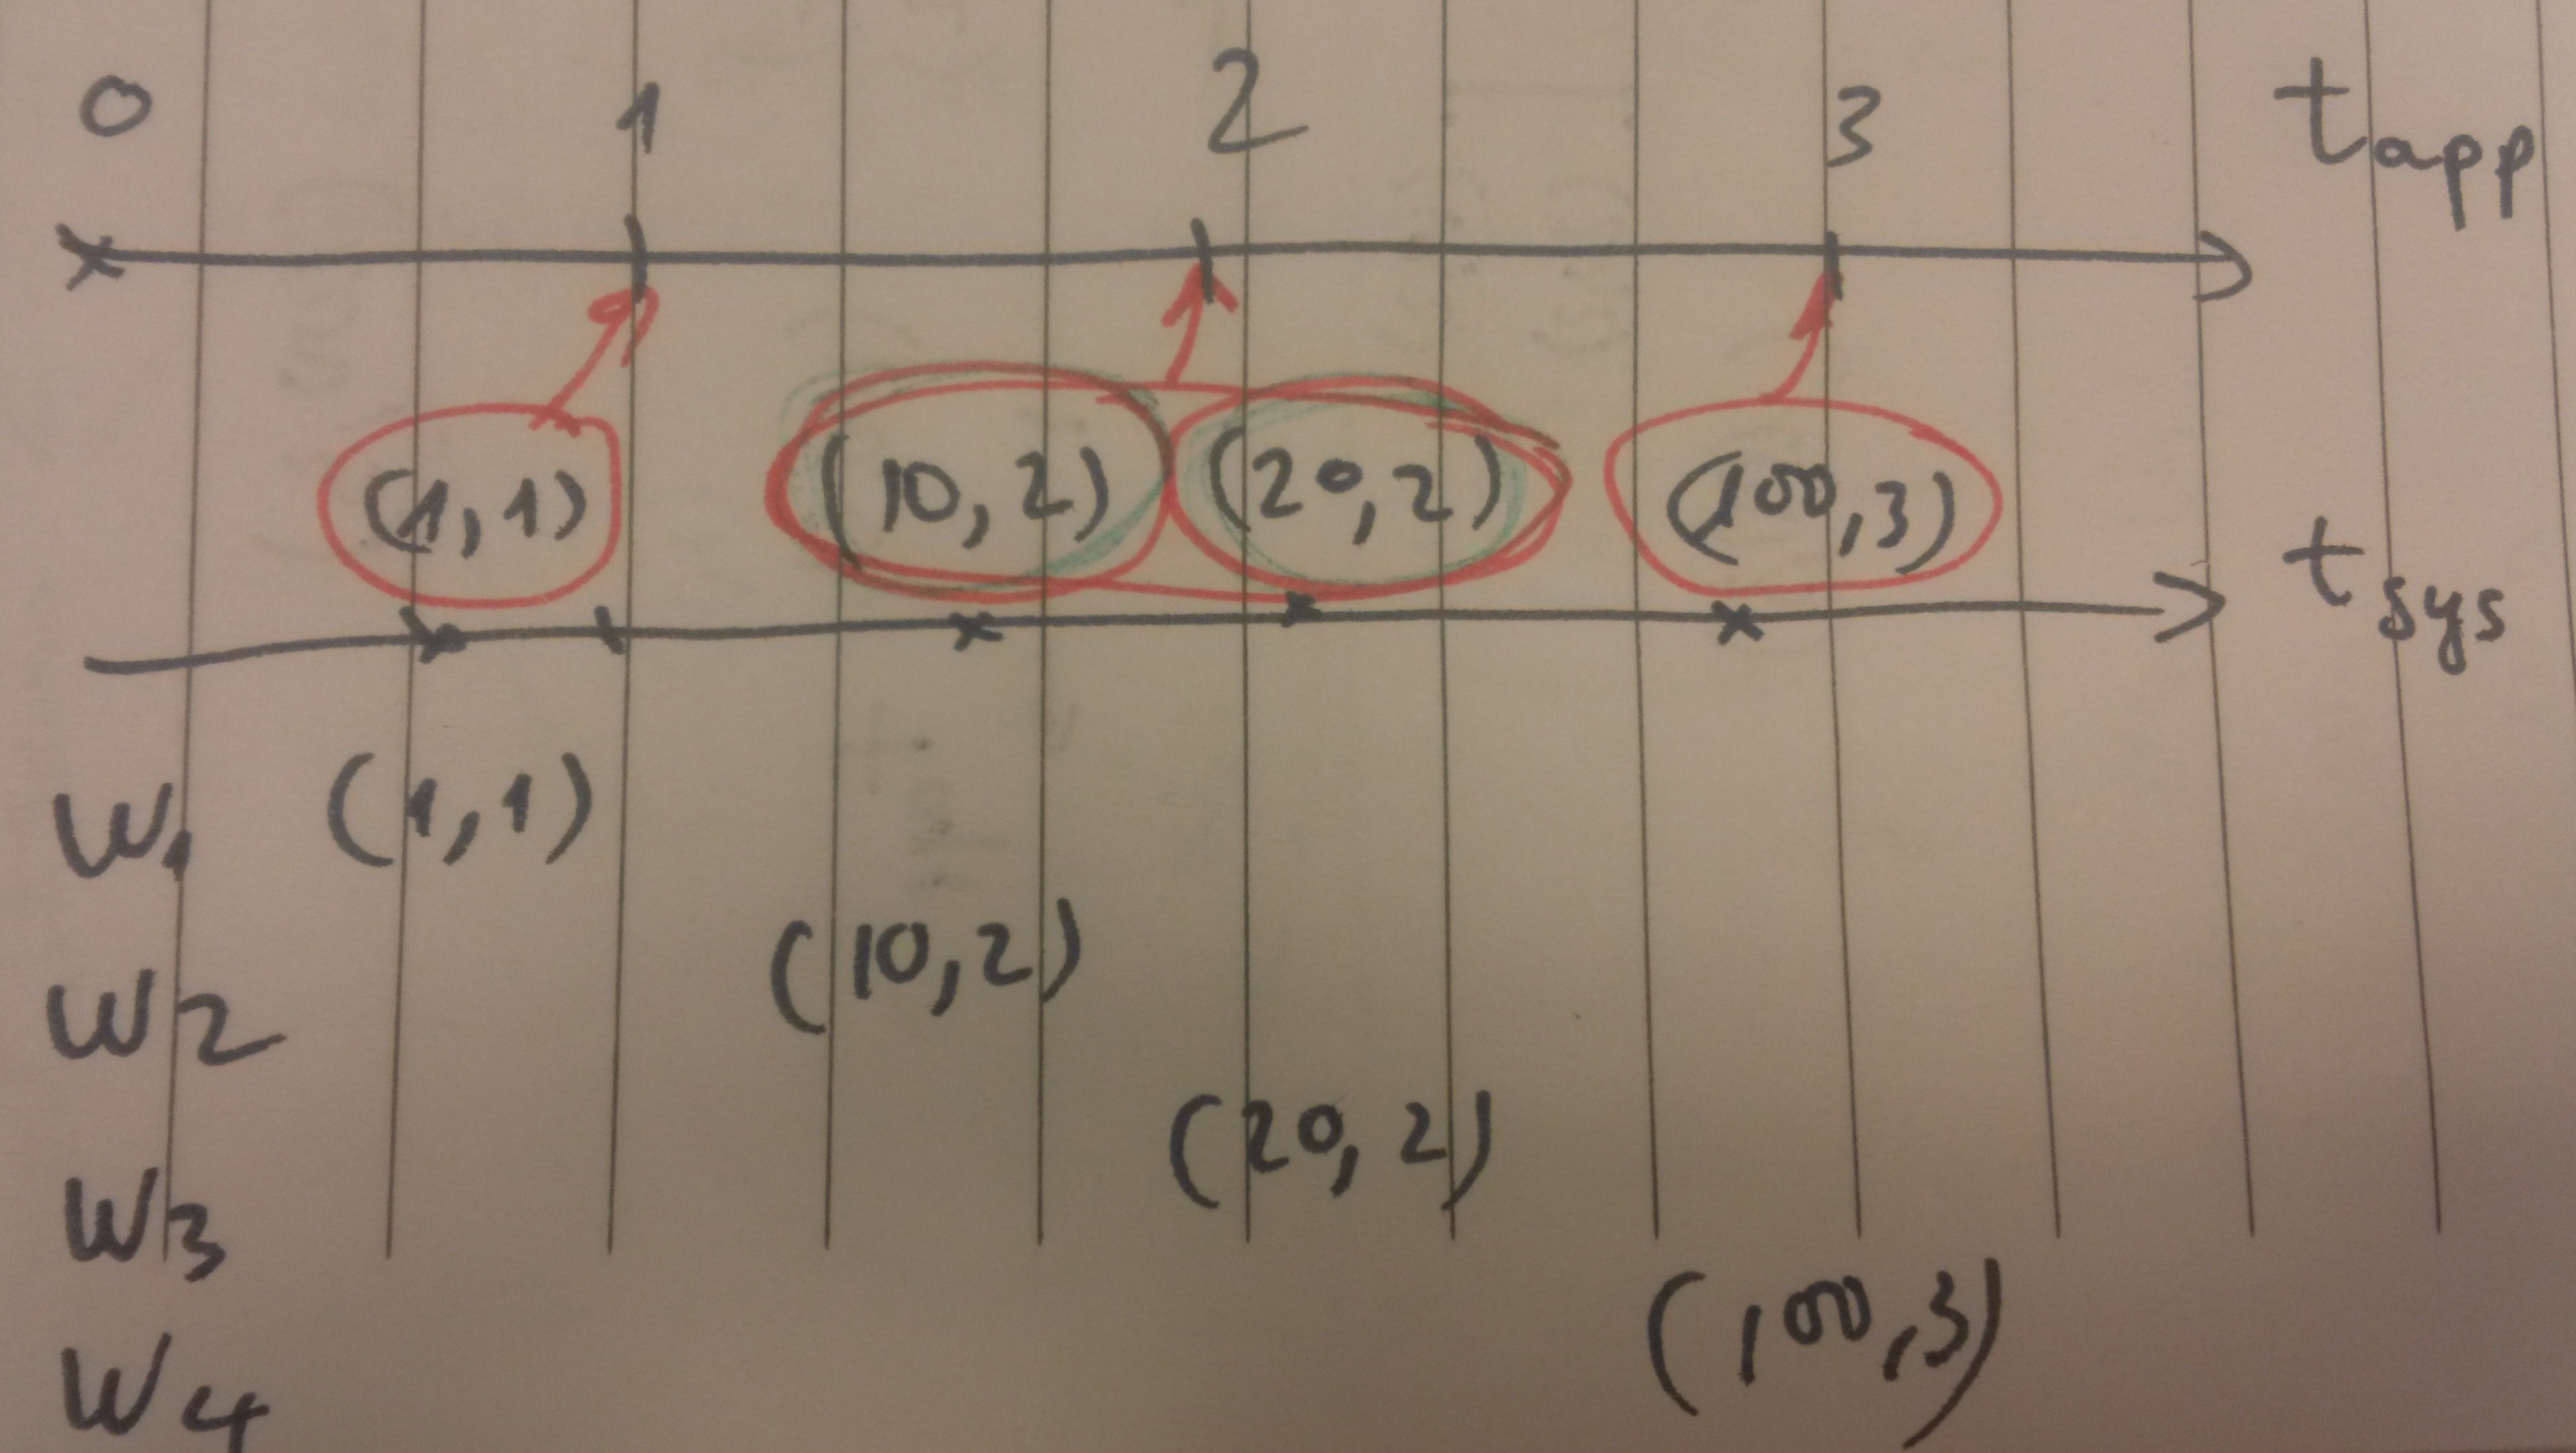 0 1 2 3 t_app
(1,1) (10,2) (20,2) (100,3)
t_sys
W1 (1,1)
W2 (10,2)
W3 (20,2)
W4 (100,3)